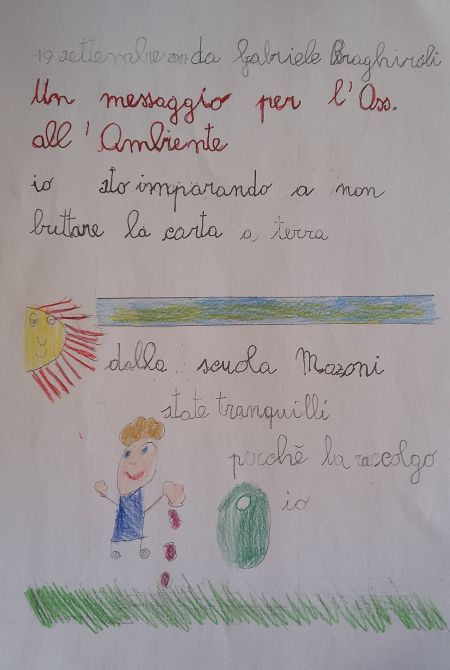 19 settembre 2017 da Gabriele Braghiroli
Un messaggio per l'Ass.
all'Ambiente
io sto imparando a non
buttare la carta a terra
dalla scuola Mazoni
state tranquilli
perchè la raccolgo
io